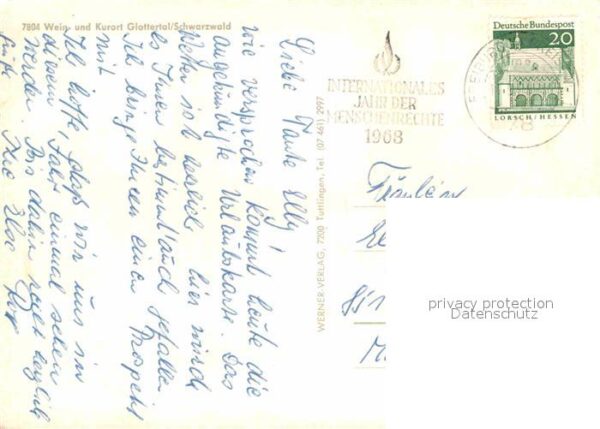 7804 Wein- und Kurort Glottertal/Schwarzwald
Liebe Tante Elly!
Wie versprochen kommt heute die
angekündigte Urlaubskarte. Das
Wetter ist herrlich hier wird
es Ihnen bestimmt auch gefallen.
Ich bringe Ihnen einen Prospekt
mit
Ich hoffe, daß wir uns in
diesem Jahr einmal sehen
werden. Bis dahin recht herzlich
Grüße
WERNER-VERLAG, 7200 Tuttlingen, Tel. (07 461) 2997
INTERNATIONALES
JAHR DER
MENSCHENRECHTE
1968
Deutsche Bundespost
20
LORSCH/HESSEN
Fräulein
privacy protection
Datenschutz